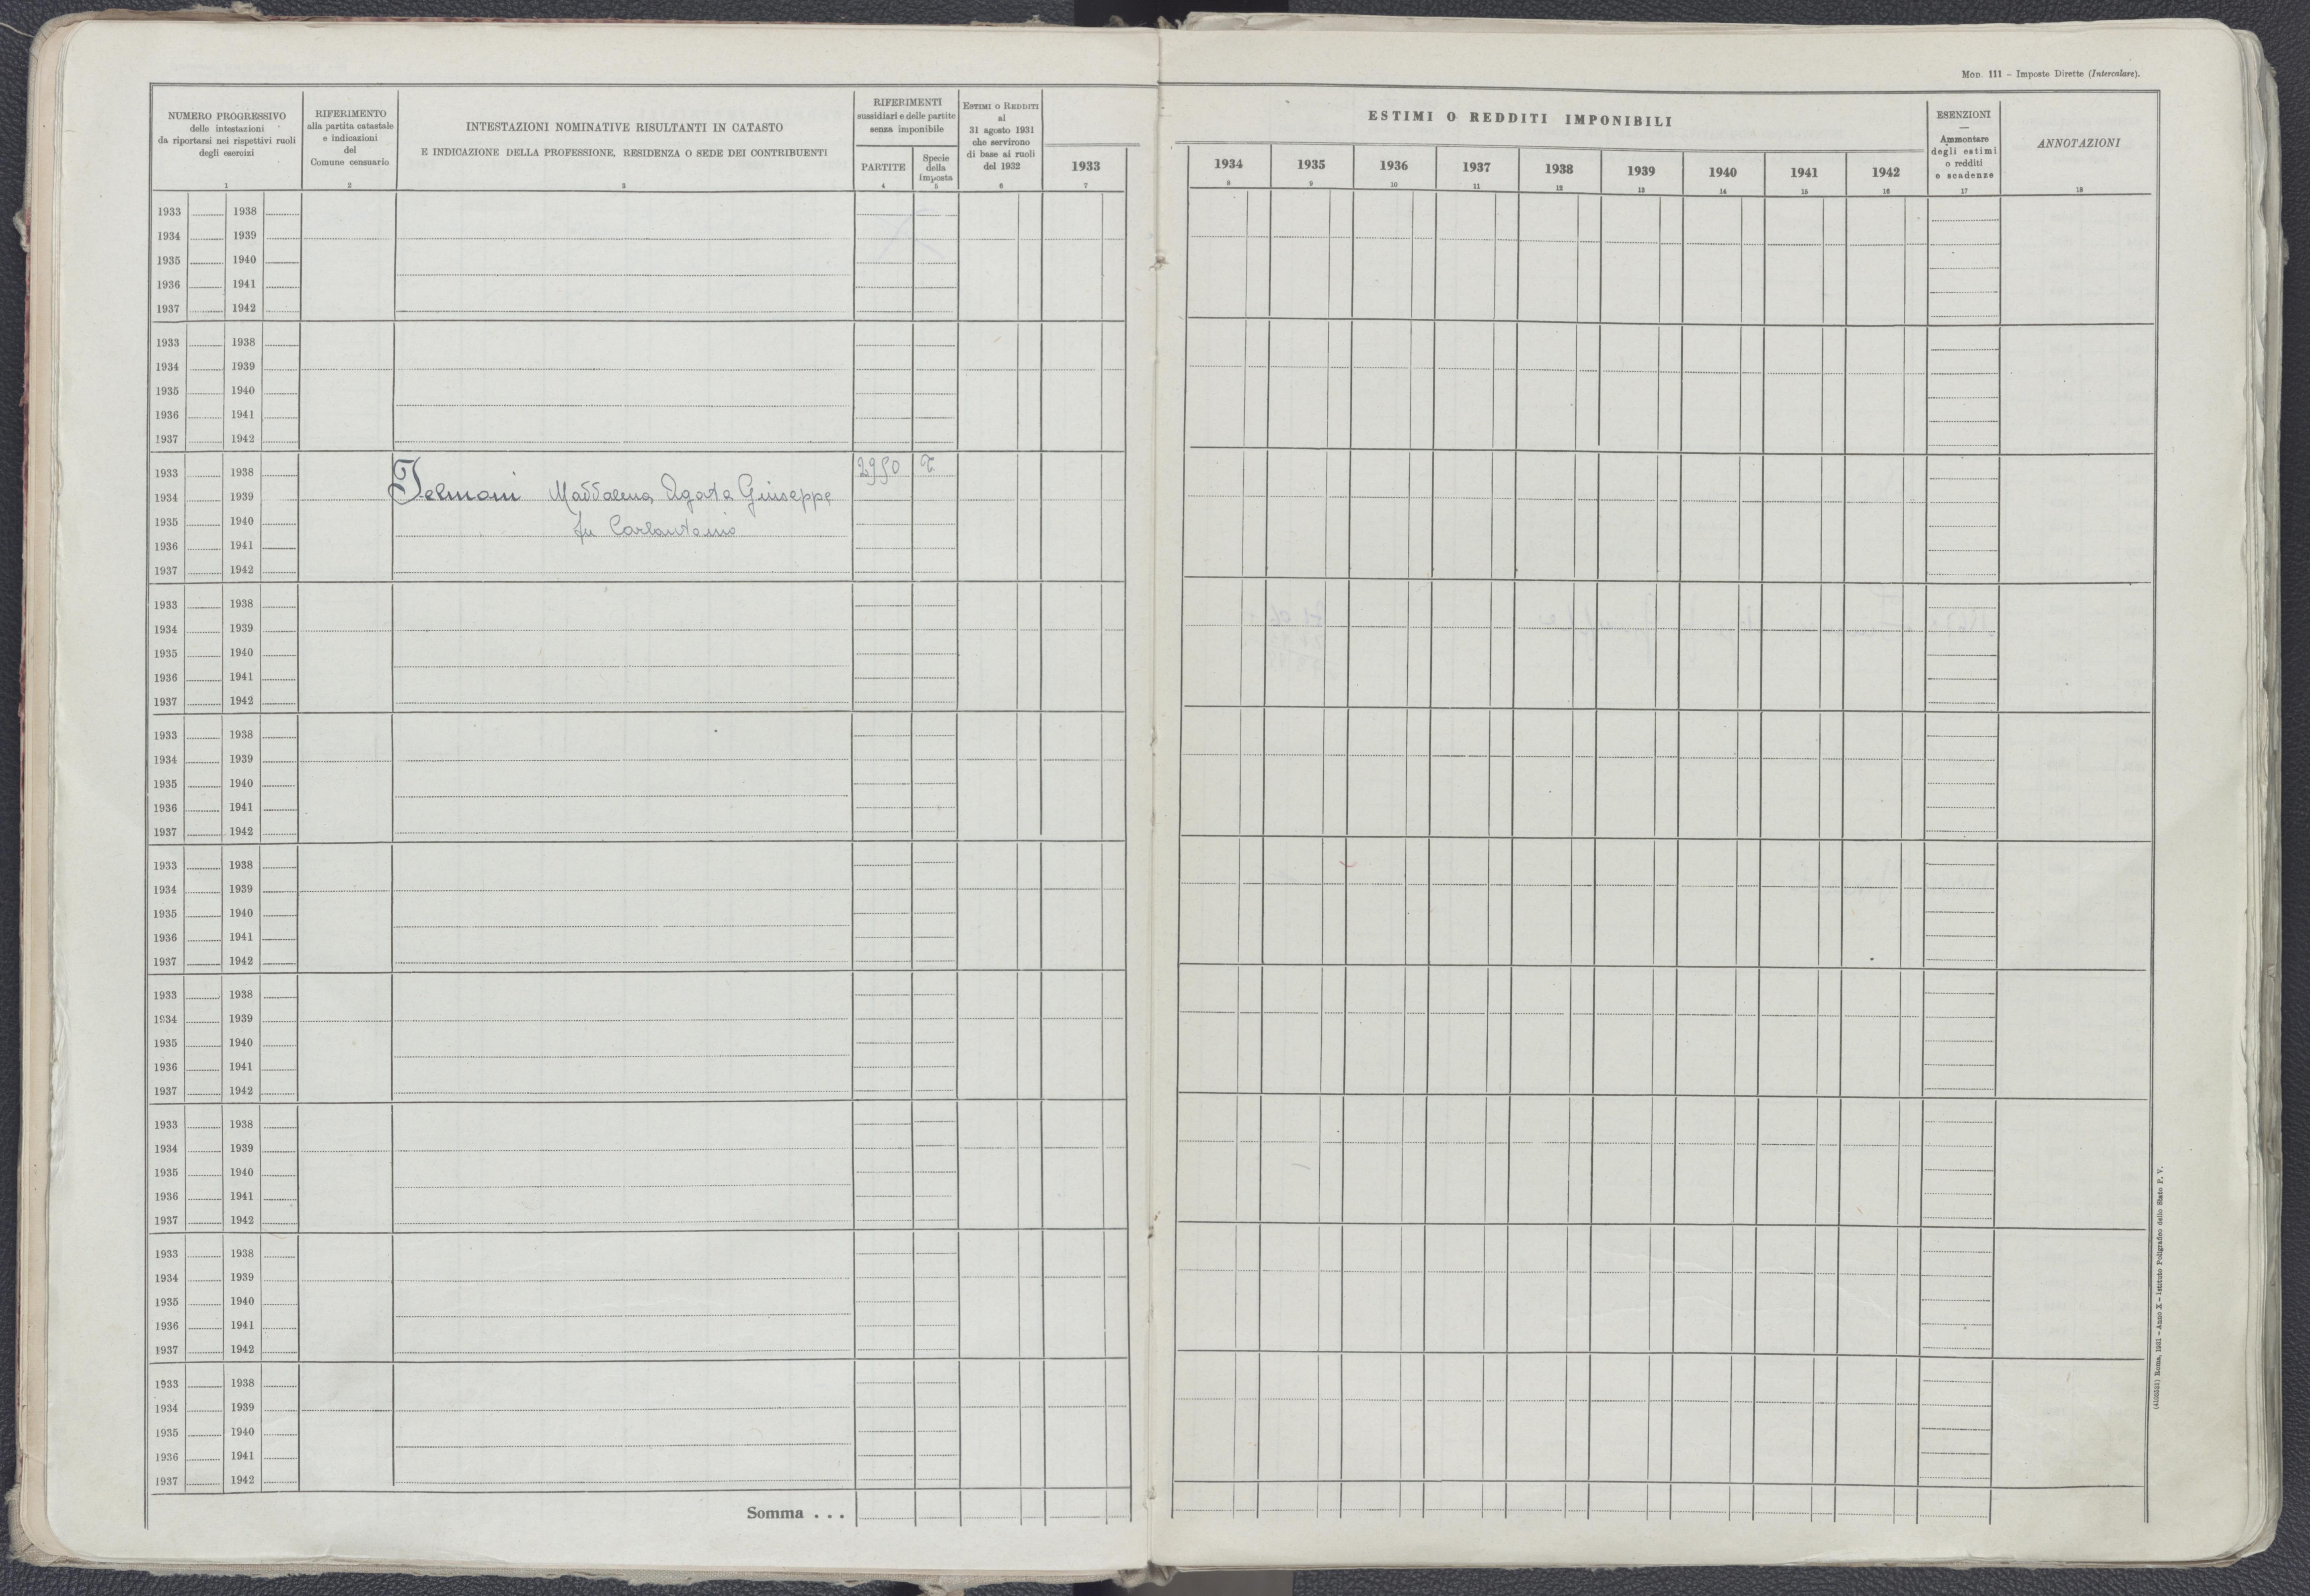 Mod. 111 – Imposte Dirette (Intercalare).
NUMERO PROGRESSIVO
delle intestazioni
da riportarsi nei rispettivi ruoli
degli esercizi
1
RIFERIMENTO
alla partita catastale
e indicazioni
del
Comune censuario
2
INTESTAZIONI NOMINATIVE RISULTANTI IN CATASTO
E INDICAZIONE DELLA PROFESSIONE, RESIDENZA O SEDE DEI CONTRIBUENTI
3
RIFERIMENTI
sussidiari e delle partite
senza imponibile
PARTITE
4
Specie
della
imposta
5
Estimi o Redditi
al
31 agosto 1931
che servirono
di base ai ruoli
del 1932
6
1933
7
ESTIMI O REDDITI IMPONIBILI
1934 1935 1936 1937 1938 1939 1940 1941 1942
8 9 10 11 12 13 14 15 16
ESENZIONI
—
Ammontare
degli estimi
o redditi
e scadenze
17
ANNOTAZIONI
18
1933 1938
1934 1939
1935 1940
1936 1941
1937 1942
1933 1938
1934 1939
1935 1940
1936 1941
1937 1942
1933 1938 2950 T.
1934 1939 Telmoni Maddalena Agata Giuseppe
1935 1940 fu Carlantonio
1936 1941
1937 1942
1933 1938
1934 1939
1935 1940
1936 1941
1937 1942
1933 1938
1934 1939
1935 1940
1936 1941
1937 1942
1933 1938
1934 1939
1935 1940
1936 1941
1937 1942
1933 1938
1934 1939
1935 1940
1936 1941
1937 1942
1933 1938
1934 1939
1935 1940
1936 1941
1937 1942
1933 1938
1934 1939
1935 1940
1936 1941
1937 1942
1933 1938
1934 1939
1935 1940
1936 1941
1937 1942
Somma . . .
Roma, 1931 – Anno X – Istituto Poligrafico dello Stato P. V.